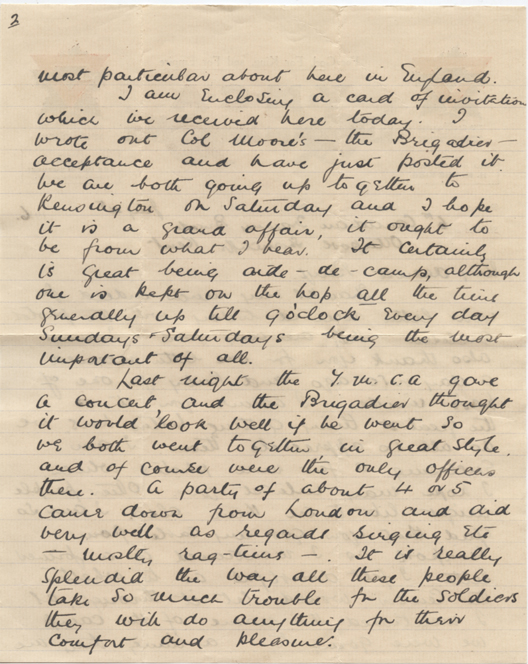 3
most particular about here in England.
I am Enclosing a card of invitation
which we received here today. I
wrote out Col Moore's — the Brigadier —
acceptance and have just posted it.
We are both going up together to
Kensington on Saturday and I hope
it is a grand affair, it ought to
be from what I hear. It certainly
is great being aide-de-camp, although
one is kept on the hop all the time
generally up till 9 o'clock Every day
Sundays & Saturdays being the most
important of all.
Last night the Y.M.C.A gave
a concert, and the Brigadier thought
it would look well if he went so
we both went together, in great style.
and of course were the only officers
there. A party of about 4 or 5
came down from London and did
very well as regards singing Etc
— mostly rag-times —. It is really
splendid the way all these people
take so much trouble for the soldiers
they will do anything for their
comfort and pleasure.